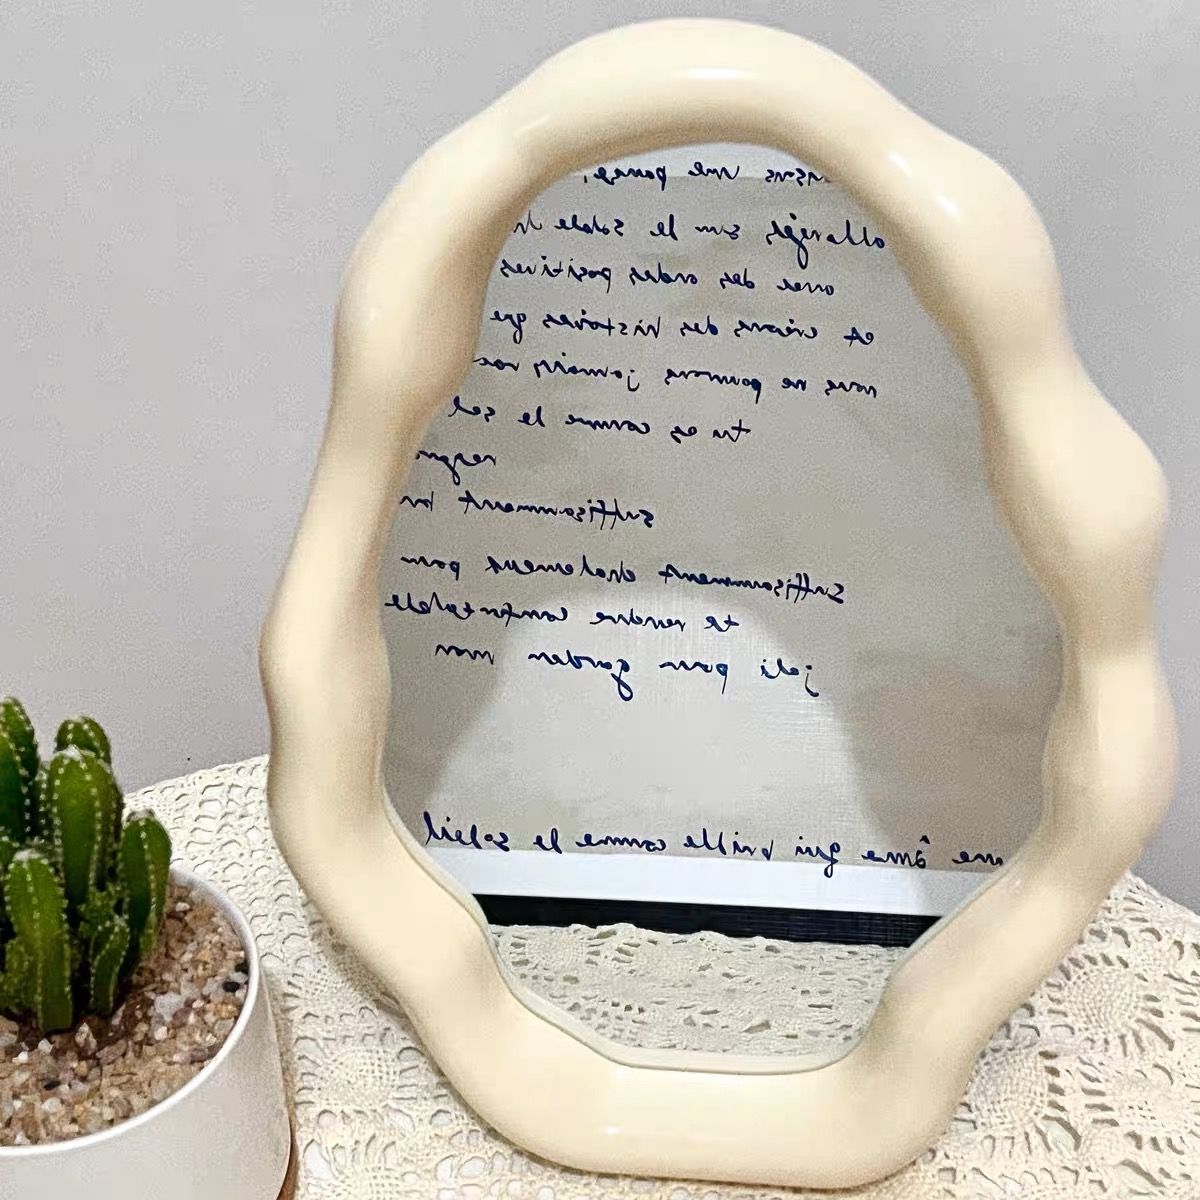 une pause,
allongés sur le sable
avec des ondes positives
et créons des histoires que
nous ne pourrons jamais
tu es comme le sel
suffisamment
suffisamment chaleureux pour
te rendre confortable
joli pour garder mon
une âme qui brille comme le soleil